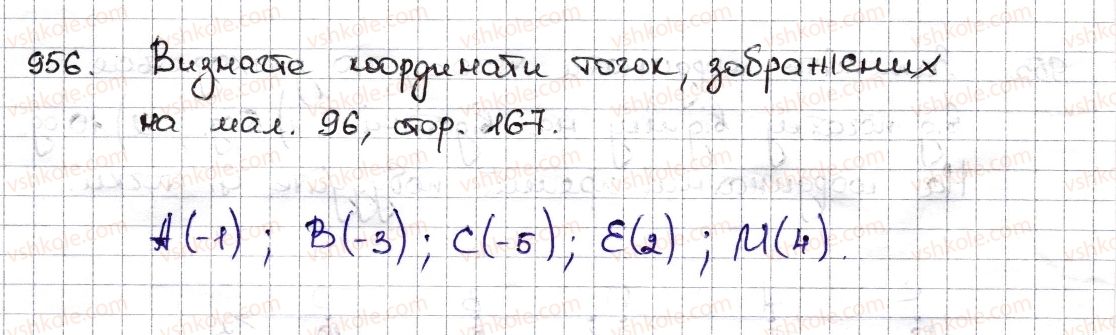 956. Визначте координати точок, зображених
на мал. 96, стор. 167.
A(-1); B(-3); C(-5); E(2); M(4).